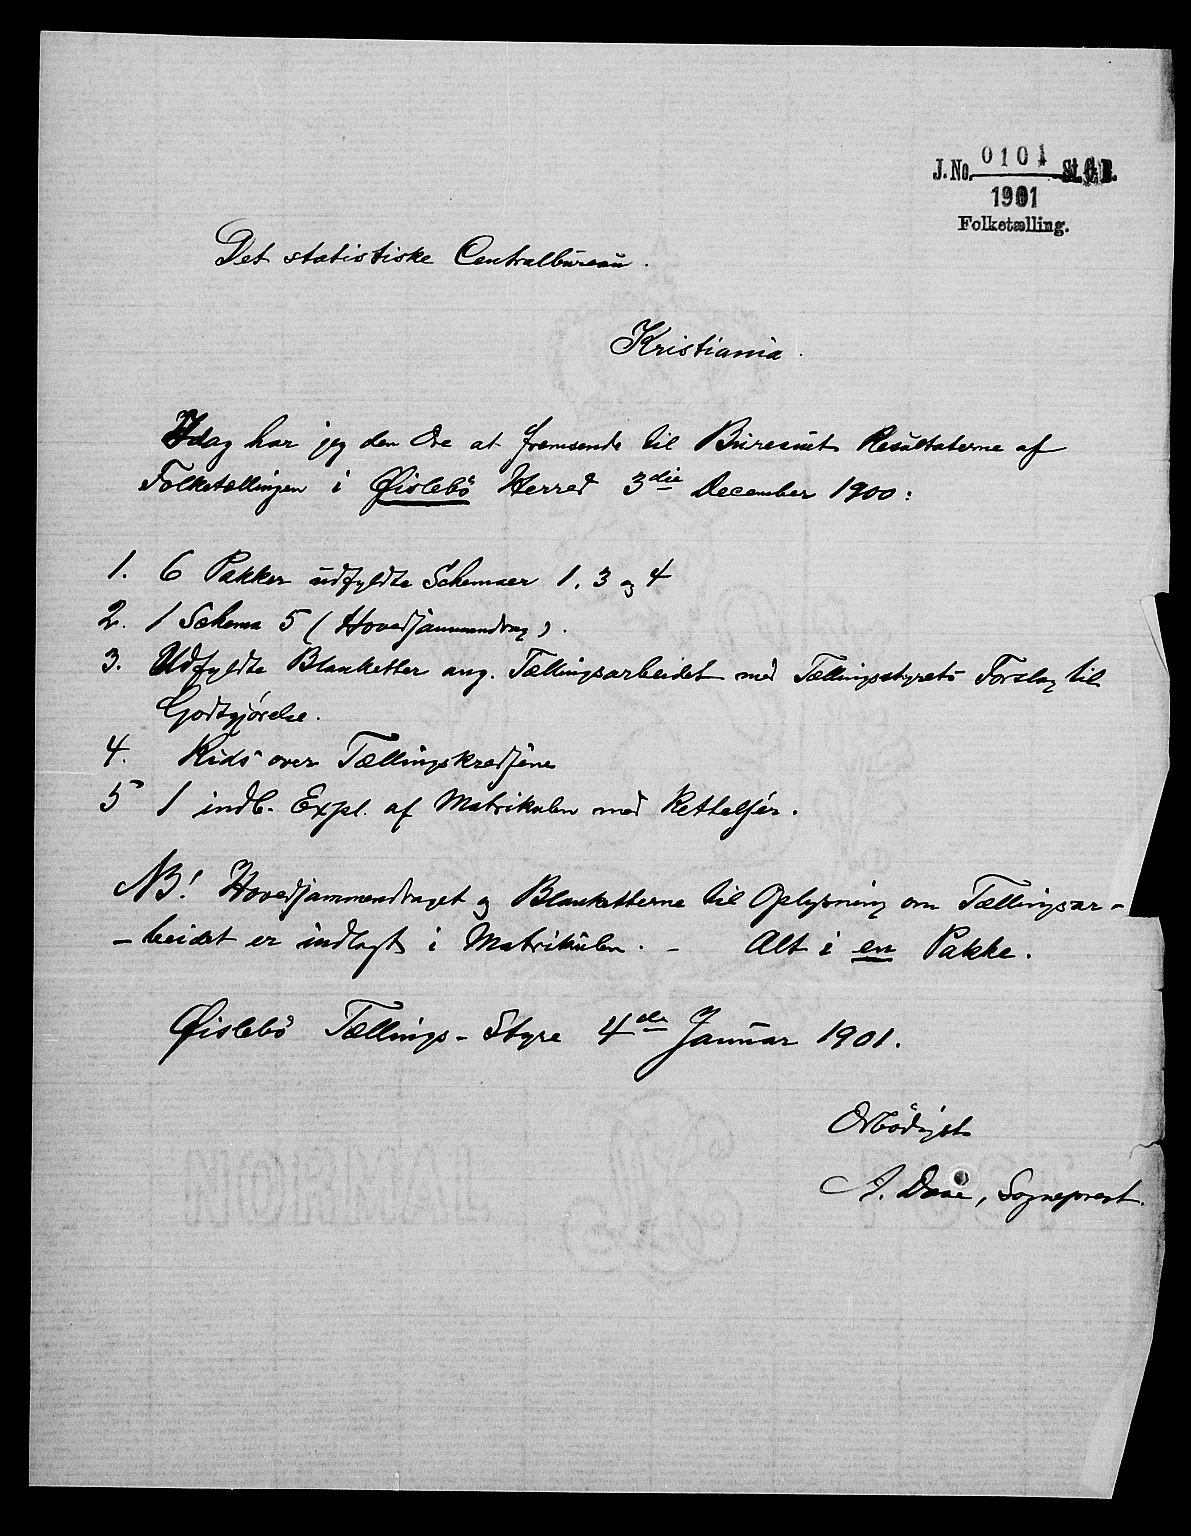 J. No. 0101 St. C. B.
1901
Folketælling.
Det statistiske Centralbureau.
Kristiania.
Idag har jeg den Ære at fremsende til Bureauet Resultaterne af
Folketællingen i Øislebö Herred 3die December 1900:
1. 6 Pakker udfyldte Schemaer 1, 3 og 4
2. 1 Schema 5 (Hovedsammendrag).
3. Udfyldte Blanketter ang. Tællingsarbeidet med Tællingsstyrets Forslag til
Godtgjörelse.
4. Rids over Tællingskredsene
5 1 indb. Expl. af Matrikulen med Rettelser.
NB! Hovedsammendraget og Blanketterne til Oplysning om Tællingsar-
-beidet er indlagt i Matrikulen. - Alt i en Pakke.
Øislebö Tællings-Styre 4de Januar 1901.
Ærbödigst
A. Daae, Sogneprest.